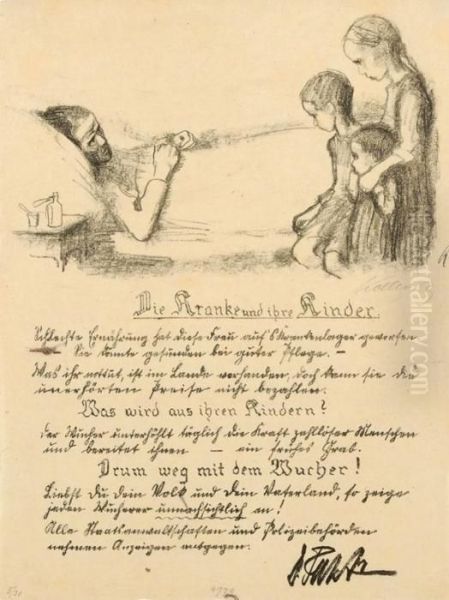 Kollwitz
Die Kranke und ihre Kinder.
Schlechte Ernährung hat diese Frau auf's Krankenlager geworfen
Sie könnte gesunden bei guter Pflege. –
Was ihr nottut, ist im Lande vorhanden, doch kann sie die
unerhörten Preise nicht bezahlen.
Was wird aus ihren Kindern?
Der Wucher unterhöhlt täglich die Kraft zahlloser Menschen
und bereitet ihnen – ein frühes Grab.
Drum weg mit dem Wucher!
Liebst du dein Volk und dein Vaterland, so zeige
jeden Wucherer unnachsichtlich an!
Alle Staatsanwaltschaften und Polizeibehörden
nehmen Anzeigen entgegen.